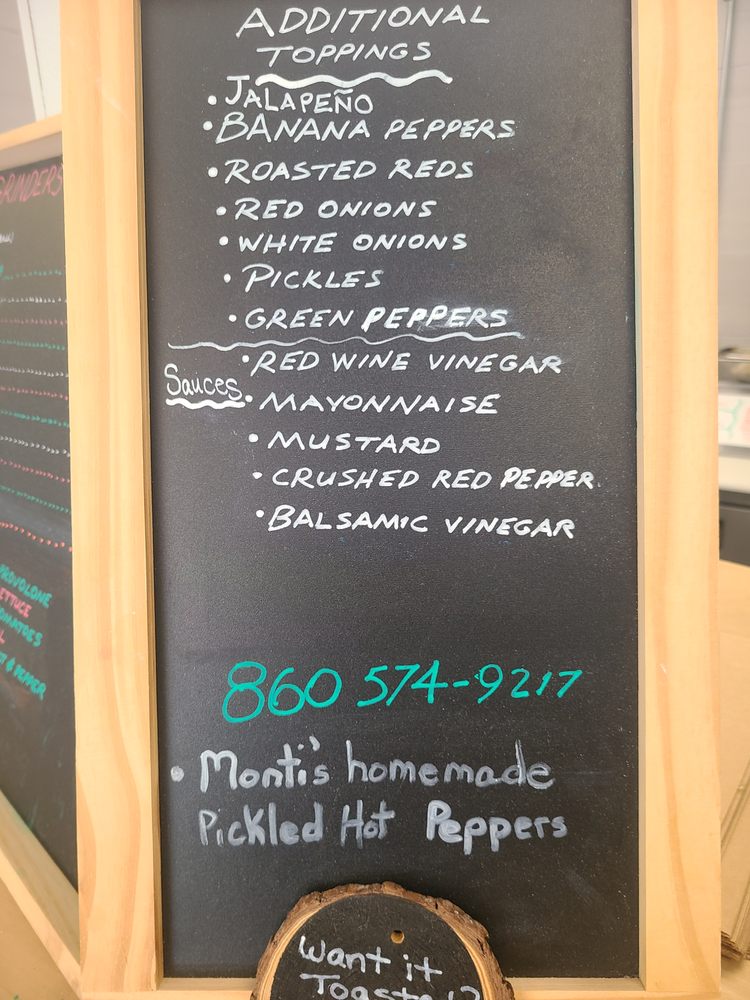 ADDITIONAL
TOPPINGS
• JALAPEÑO
• BANANA PEPPERS
• ROASTED REDS
• RED ONIONS
• WHITE ONIONS
• PICKLES
• GREEN PEPPERS
• RED WINE VINEGAR
Sauces
• MAYONNAISE
• MUSTARD
• CRUSHED RED PEPPER
• BALSAMIC VINEGAR
860 574-9217
• Monti's homemade
Pickled Hot Peppers
Want it
GRINDERS
PROVOLONE
LETTUCE
TOMATOES
& PEPPER